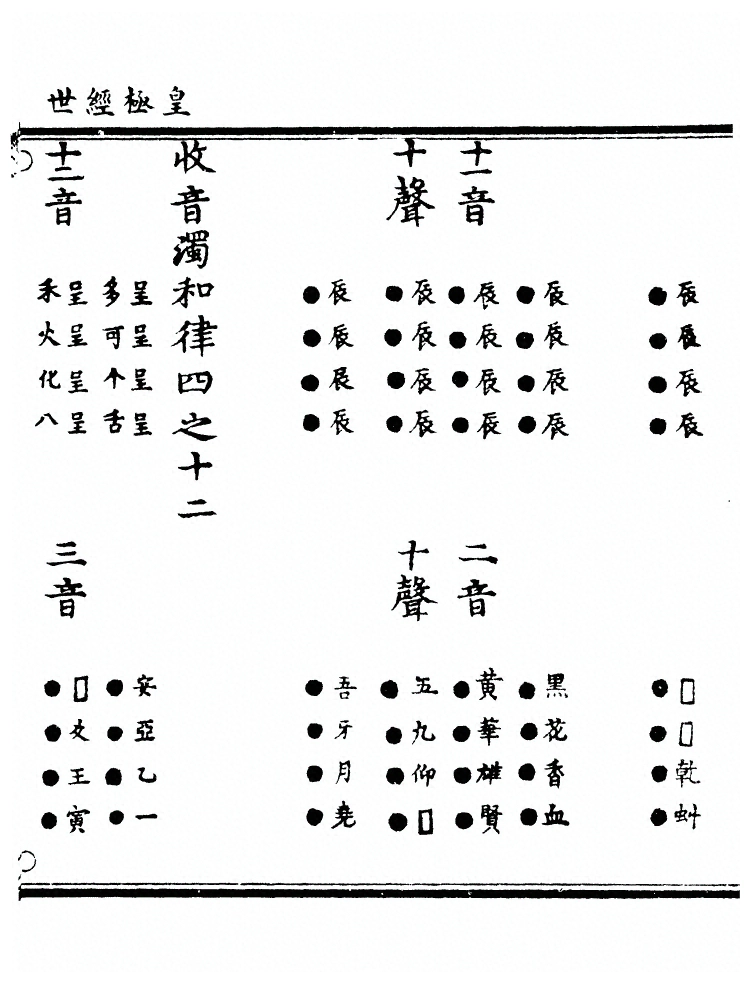 皇極經世
辰辰辰辰
●●●●
辰辰辰辰
●●●●
十一音
辰辰辰辰
●●●●
十聲
辰辰辰辰
●●●●
辰辰辰辰
●●●●
收音濁和律四之十二
呈呈呈呈
多可个舌
十二音
呈呈呈呈
禾火化八
□□乾虯
●●●●
黑花香血
●●●●
二音
黃華雄賢
●●●●
十聲
五九仰□
●●●●
吾牙月堯
●●●●
安亞乙一
●●●●
三音
□爻王寅
●●●●